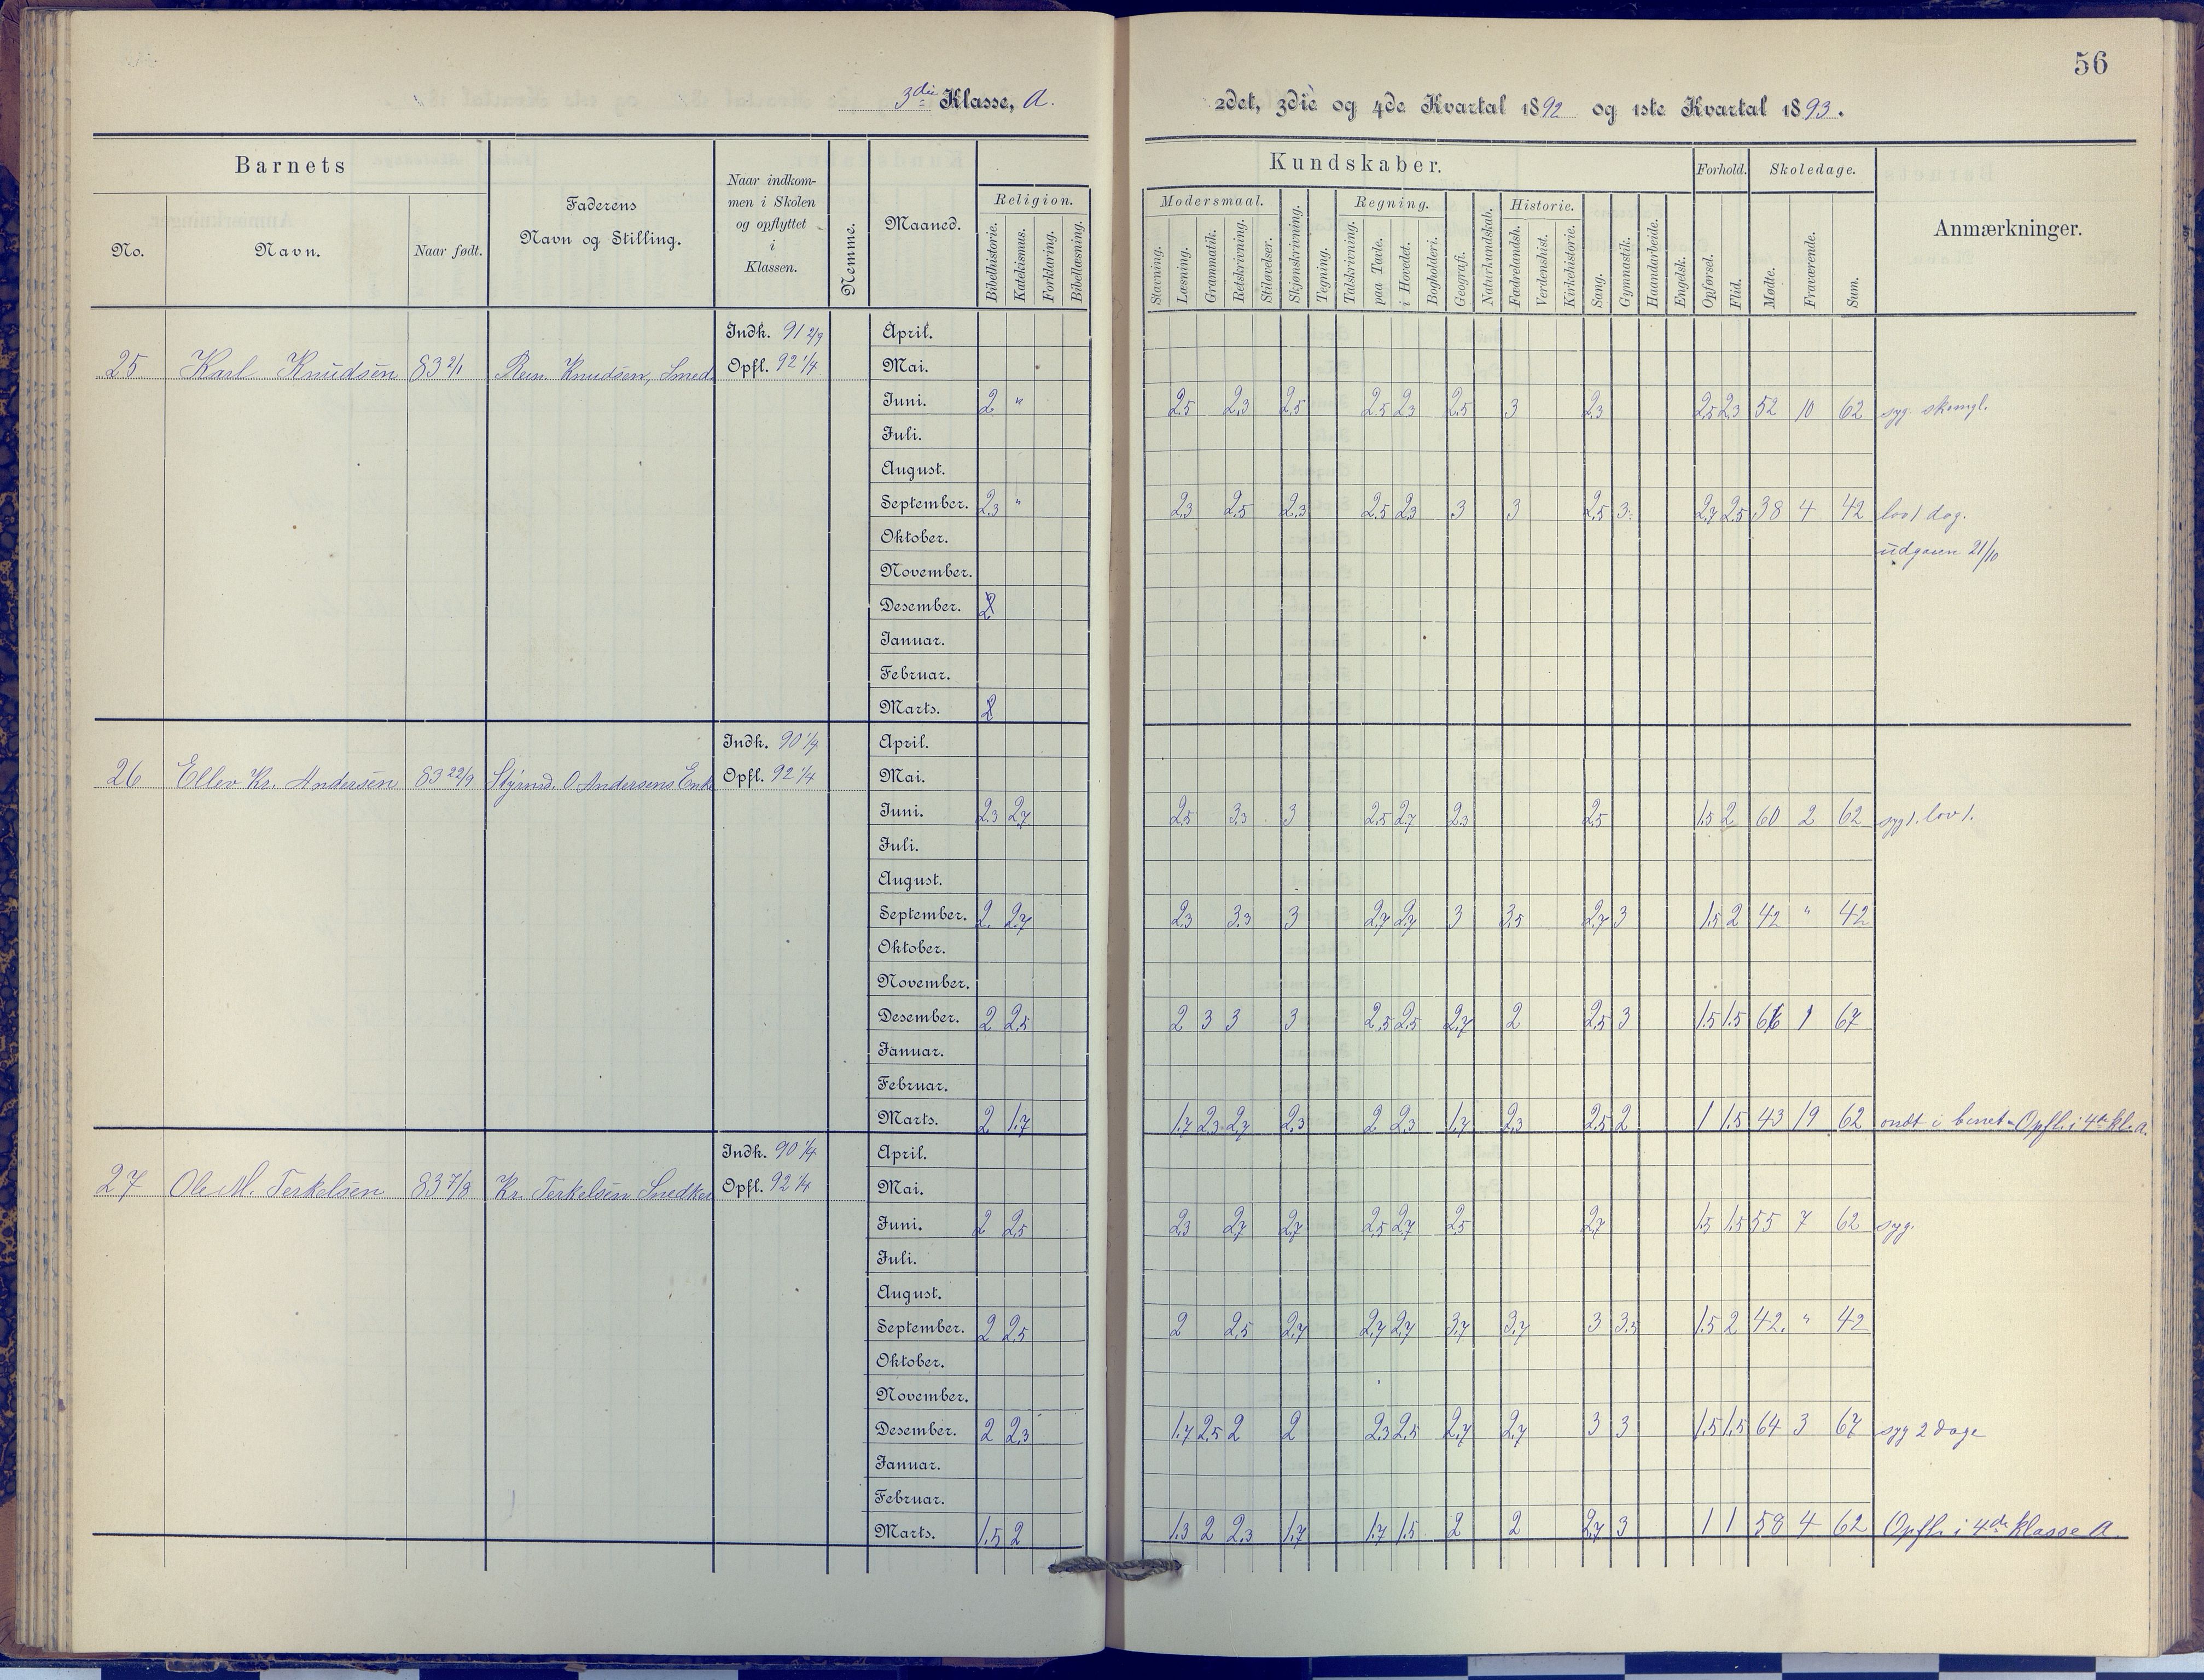 56
3die Klasse, A.
2det, 3die og 4de Kvartal 1892 og 1ste Kvartal 1893.
Barnets
No.
Navn.
Naar født.
Faderens
Navn og Stilling.
Naar indkom-
men i Skolen
og opflyttet
i
Klassen.
Nemme.
Maaned.
Kundskaber.
Religion.
Bibelhistorie.
Katekismus.
Forklaring.
Bibellæsning.
Modersmaal.
Stavning.
Læsning.
Grammatik.
Retskrivning.
Stiløvelser.
Skjønskrivning.
Tegning.
Regning.
Talskrivning.
paa Tavle.
i Hovedet.
Bogholderi.
Geografi.
Naturkundskab.
Historie.
Fædrelandsh.
Verdenshist.
Kirkehistorie.
Sang.
Gymnastik.
Haandarbeide.
Engelsk.
Forhold.
Opførsel.
Flid.
Skoledage.
Møde.
Fraværende.
Sum.
Anmærkninger.
Indk. 91 2/9 April.
25 Karl Knudsen 83 2/1 Knudsen, Smed Opfl. 92 1/4 Mai.
Juni. 2 " 2.5 2.3 2.5 2.5 2.3 2.5 3 2.3 2.5 2.3 52 10 62 syg.
Juli.
August.
September. 2.3 " 2.3 2.5 2.3 2.5 2.3 3 3 2.5 3 2.7 2.5 38 4 42 lov 1 dag.
Oktober.
udgaaen 21/10
November.
Desember. 2
Januar.
Februar.
Marts. 2
Indk. 90 1/9 April.
26 Ellev Kr. Andersen 83 22/9 Styrmd. O Andersens Enke Opfl. 92 1/4 Mai.
Juni. 2.3 2.7 2.5 3.3 3 2.5 2.7 2.3 2.5 1.5 2 60 2 62 syg 1. lov 1.
Juli.
August.
September. 2 2.7 2.3 3.3 3 2.7 2.7 3 3.5 2.7 3 1.5 2 42 " 42
Oktober.
November.
Desember. 2 2.5 2 3 3 3 2.5 2.5 2.7 2 2.5 3 1.5 1.5 66 1 67
Januar.
Februar.
Marts. 2 1.7 1.7 2.3 2.7 2.3 2 2.3 1.7 2.3 2.5 2 1 1.5 43 19 62 ondt i benet - Opfl. i 4de kl. a.
Indk. 90 1/4 April.
27 Ole M. Terkelsen 83 7/8 Kr. Terkelsen Snedker Opfl. 92 1/4 Mai.
Juni. 2 2.5 2.3 2.7 2.7 2.5 2.7 2.5 2.7 1.5 1.5 55 7 62 syg.
Juli.
August.
September. 2 2.5 2 2.5 2.7 2.7 2.7 3.7 3.7 3 3.5 1.5 2 42. " 42
Oktober.
November.
Desember. 2 2.3 1.7 2.5 2 2 2.3 2.5 2.7 2.7 3 3 1.5 1.5 64 3 67 syg 2 dage
Januar.
Februar.
Marts. 1.5 2 1.3 2 2.3 1.7 1.7 1.5 2 2 2.7 3 1 1 58 4 62 Opfl. i 4de Klasse A.